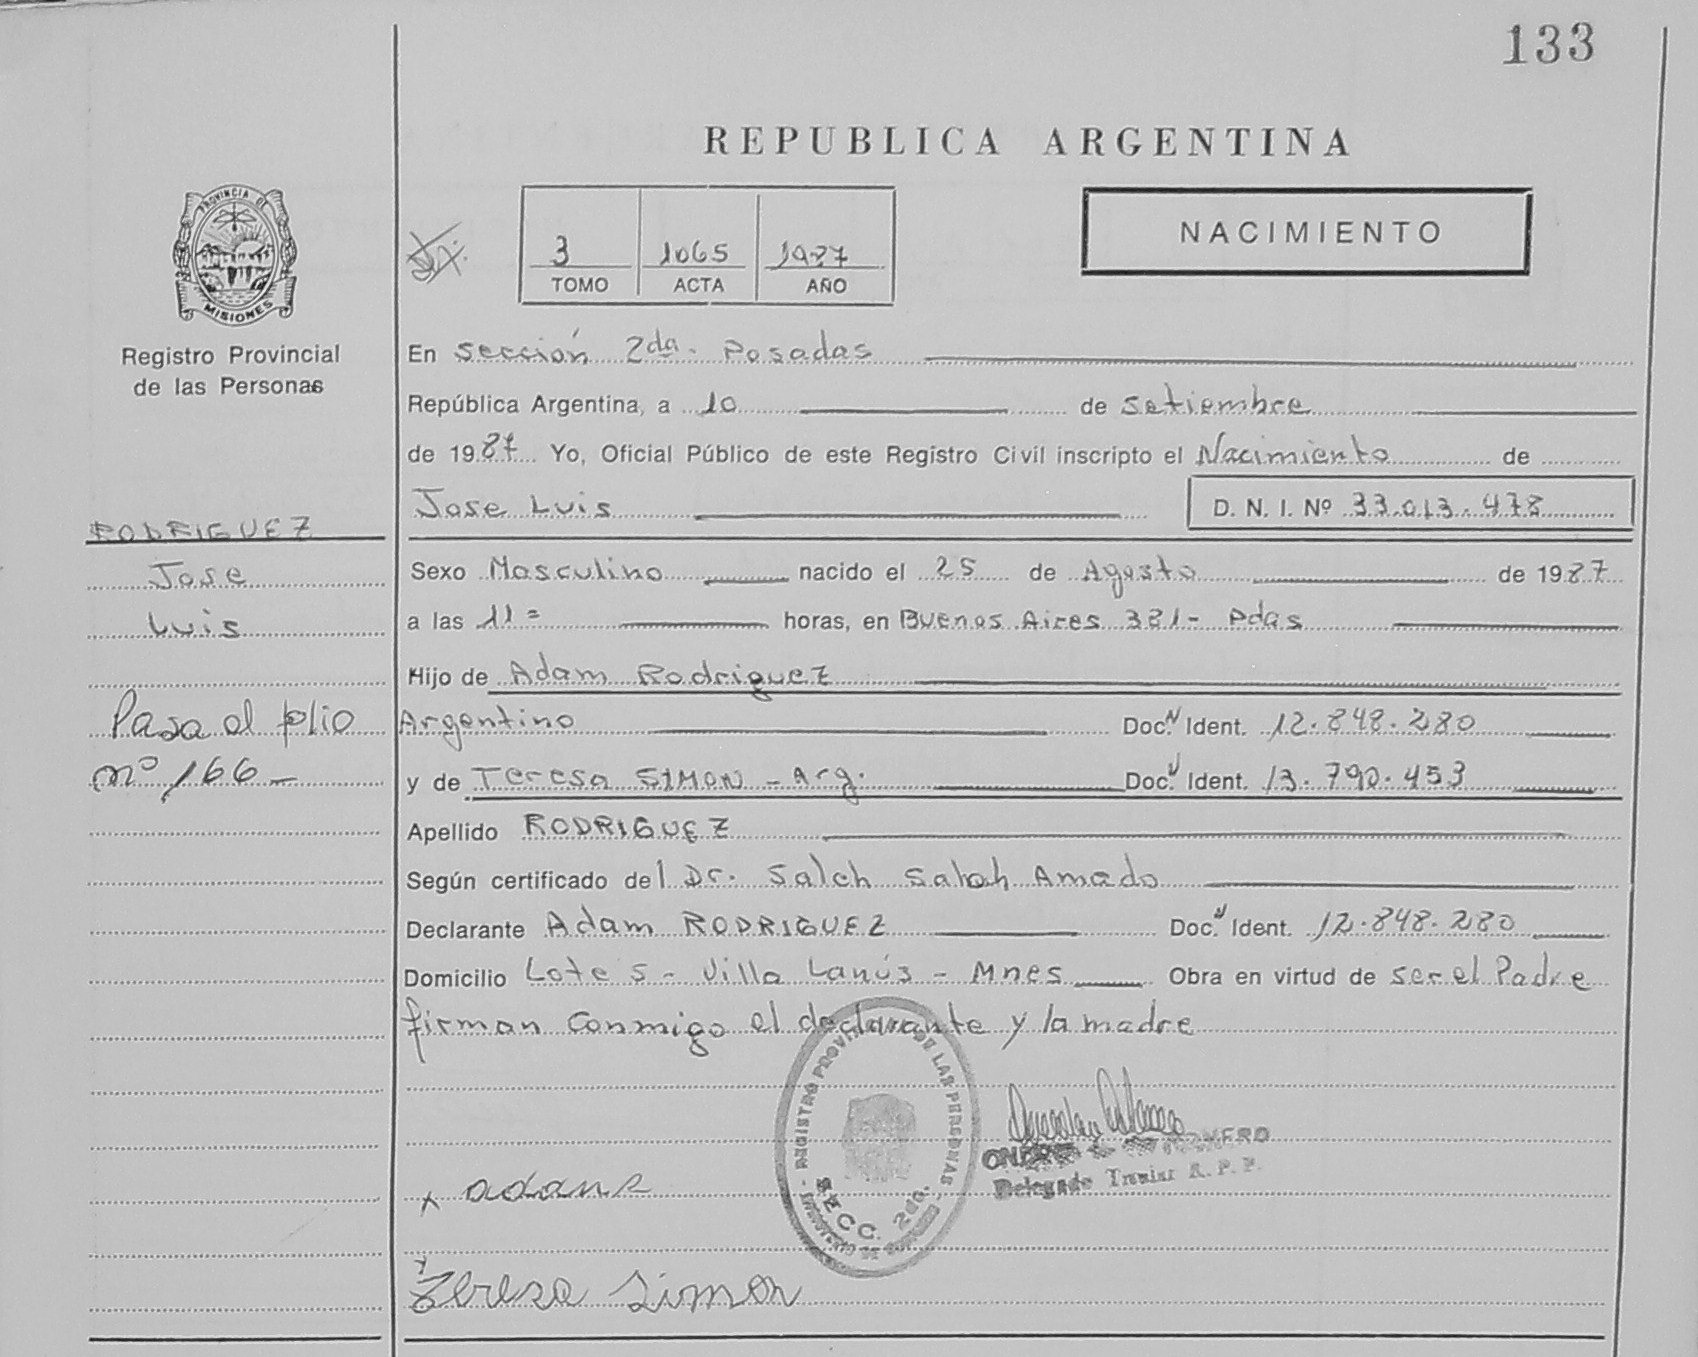 133
REPUBLICA ARGENTINA
PROVINCIA DE
MISIONES
Registro Provincial
de las Personas
3 1065 1987
TOMO ACTA AÑO
NACIMIENTO
En sección 2da. Posadas
República Argentina, a 10 de Setiembre
de 1987 Yo, Oficial Público de este Registro Civil inscripto el Nacimiento de
Jose Luis D. N. I. Nº 33.013.478
RODRIGUEZ
Jose
Luis
Pasa al folio
nº 166-
Sexo Masculino nacido el 25 de Agosto de 1987
a las 11= horas, en Buenos Aires 321- Pdas
Hijo de Adam Rodriguez
Argentino Doc. Ident. 12.848.280
y de Teresa SIMON - Arg. Doc. Ident. 13.790.453
Apellido RODRIGUEZ
Según certificado del Dr. Saleh Salah Amado
Declarante Adam RODRIGUEZ Doc. Ident. 12.848.280
Domicilio Lote 5 - Villa Lanús - Mnes Obra en virtud de ser el Padre
firman conmigo el declarante y la madre
REGISTRO PROVINCIAL DE LAS PERSONAS
SECC. 2da.
ROMERO
Delegado Titular R. P. P.
x adans
x Teresa Simon